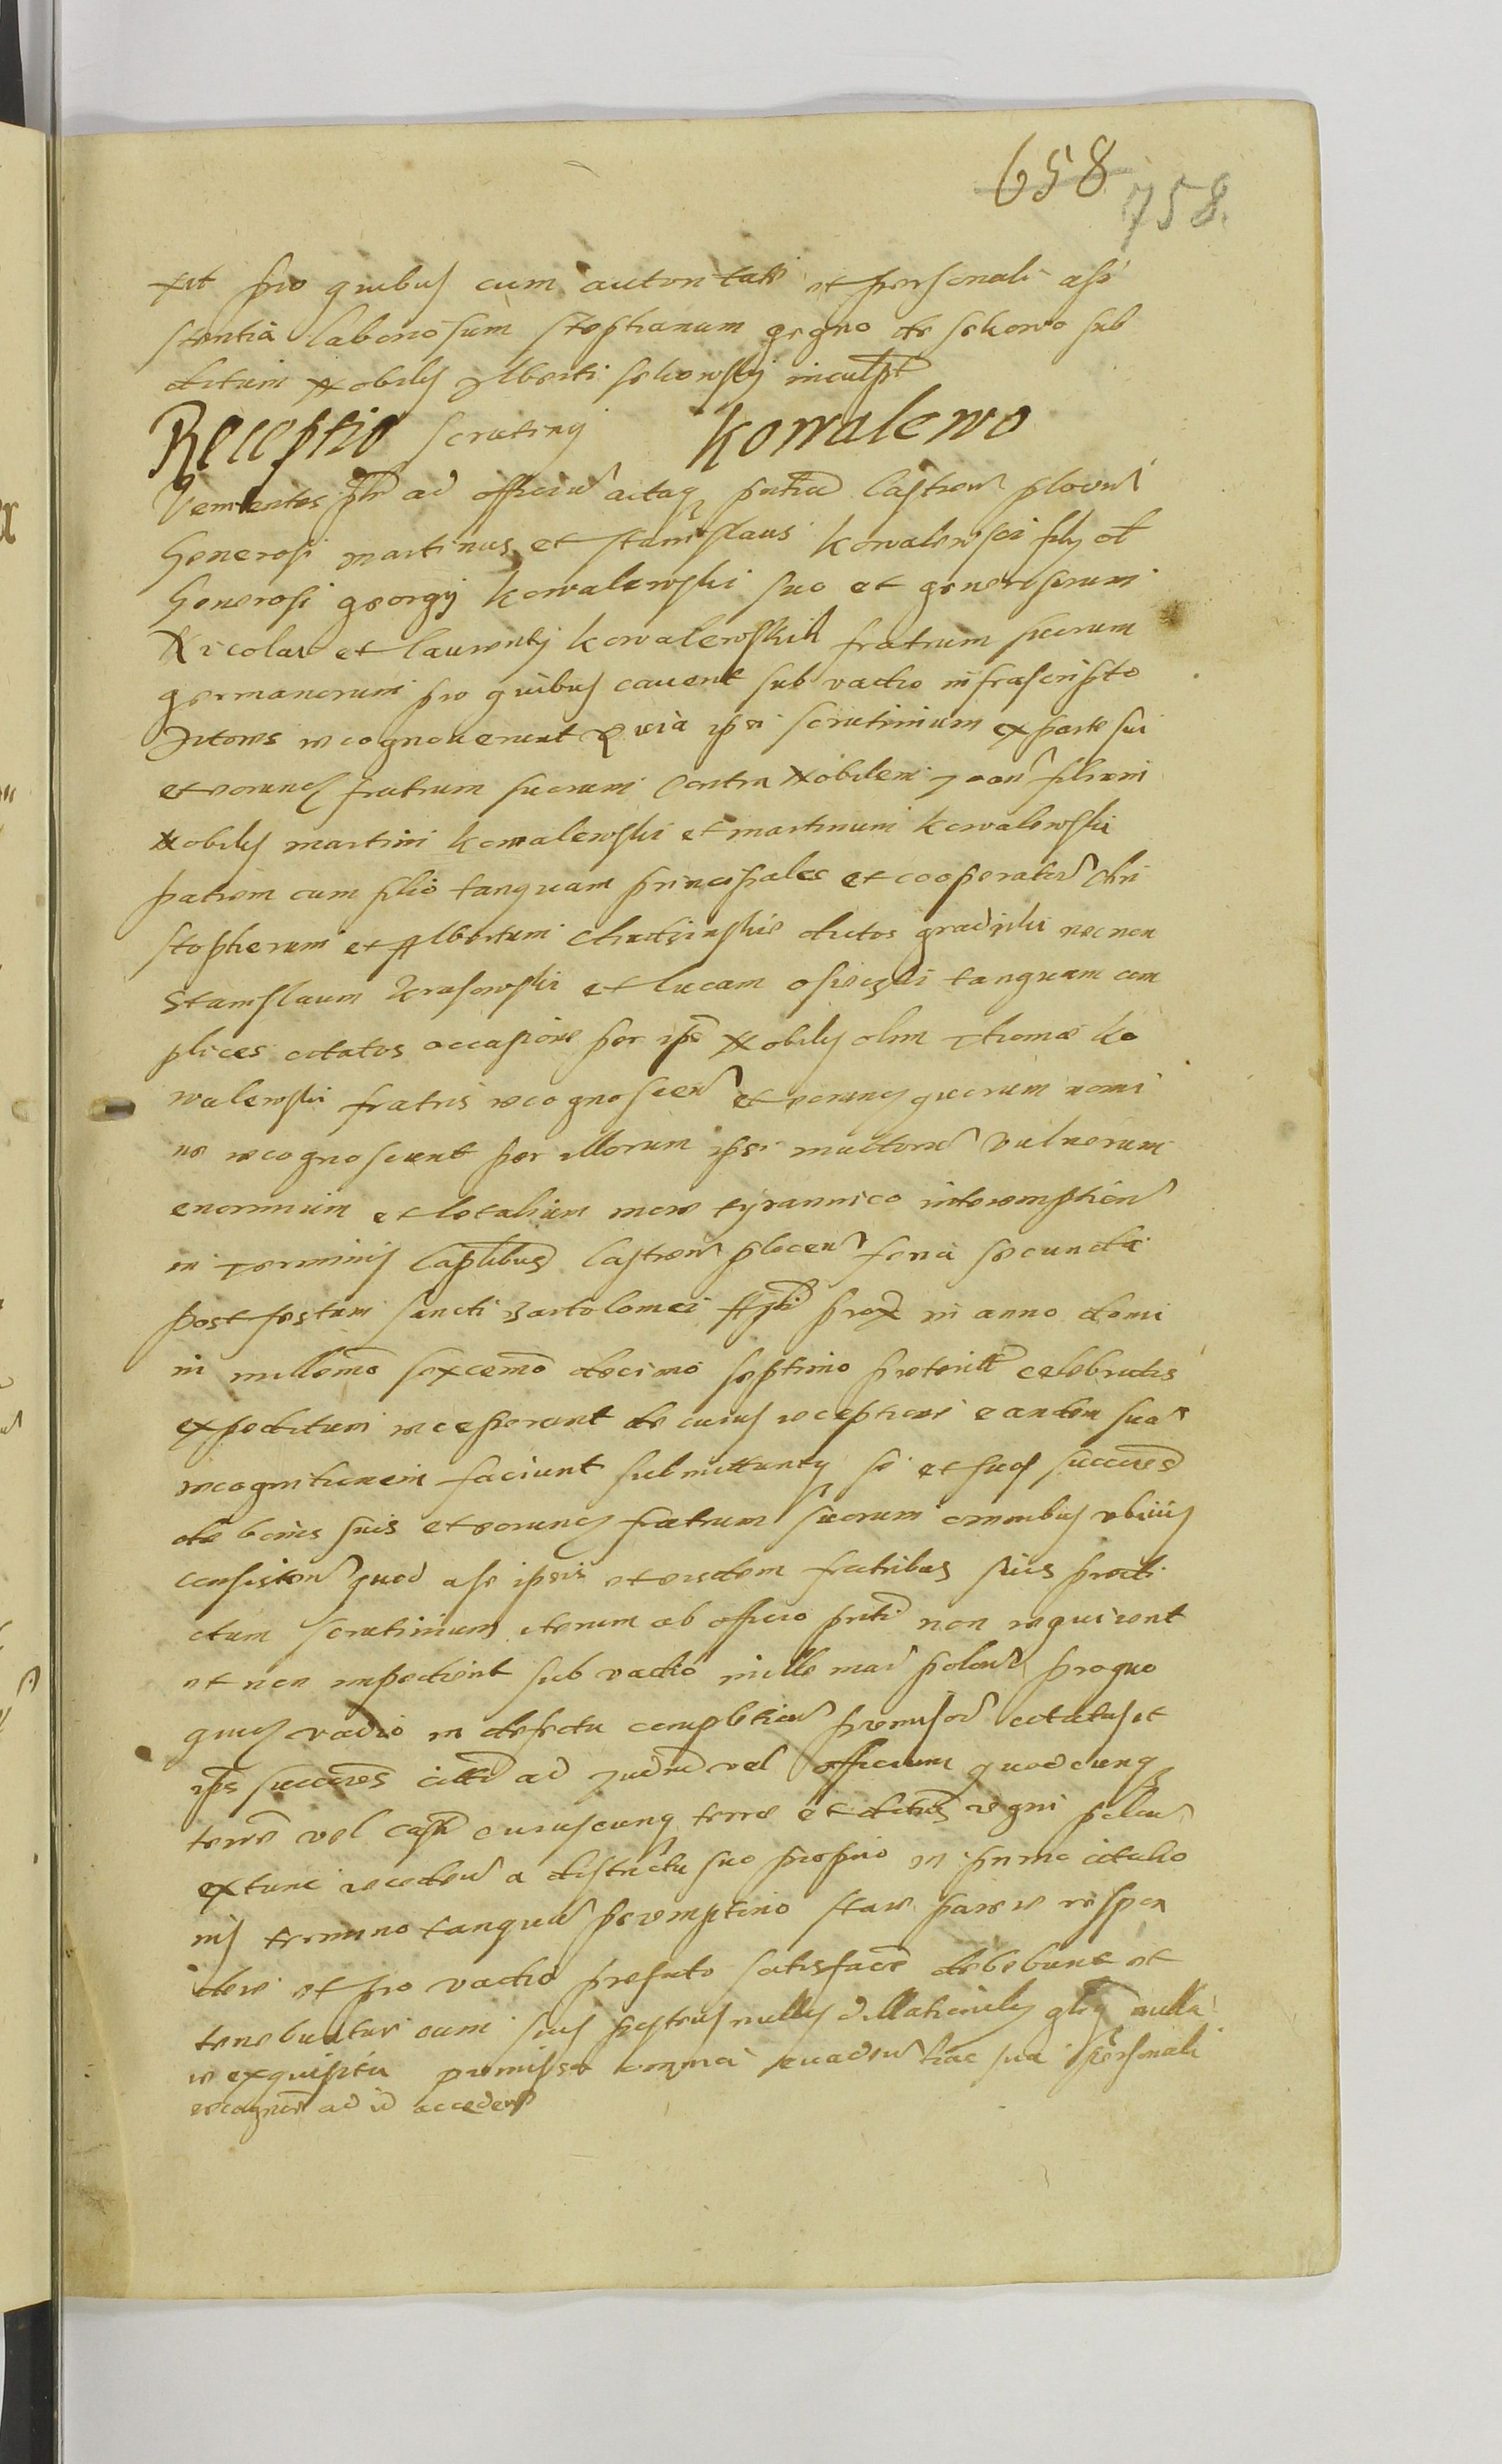 658 758.
xit pro quibus cum autoritate et personali assi
stentia laboriosum Stephanum gegno de sekowo sub
ditum Nobilis Alberti sekowskij inculpt
Receptio scrutinij Kowalewo
Venientes prn ad officiu actaq pntia Castren plocen
Generosi martinus et stanislaus kowalewsci filij ol
Generosi georgij kowalewski suo et generosorum
Nicolai et laurentij kowalewskich fratrum suorum
germanorum pro quibus cavent sub vadio infrascripto
recognoverunt Quia ipsi scrutinium ex parte sui
et eorund fratrum suorum Contra Nobilem Joan filium
Nobilis martini kowalewski et martinum kowalewski
patrem cum filio tanquam principales et cooperatus Chri
stopherum et Albertum dictos gradziki necnon
Stanislaum Krasowski et lucam osiecski tanquam com
plices citatos occasione per ips Nobilis olim Thomae ko
walewski fratris recognoscen et eorund quorum nomi
ne recognoscunt per illorum ipsi vulnerum
enormium et letalium more tyrannico interemption
in Terminis Caplibus Castren plocen feria secunda
post festum sancti Bartolomei Apli prox in anno domi
ni millemo sexcemo decimo septimo preterit celebratis
expeditum receperunt de cuius receptione eandem sua
recognitionem faciunt submittuntq se et suos success
de bonis suis et eorund fratrum suorum omnibus ubivis
consisten quod ase ipsis et eisdem fratribus suis predi
ctum scrutinium iterum ab officio pnti non requirent
et non impedient sub vadio mille mar polon pro quo
quid vadio in defectu completion premissor citatus et
ips success citti ad Judm vel officium quodcunq
terre vel castr cuiuscunq terre et distrs regni polon
extunc receden a districtu suo proprio in primo citatio
nis termino tanqua peremptorio stare parere respon
dere et pro vadio prefato satisfacere debebunt et
tenebuntur cum suis posteris nullis dillationibus nulla
re exquisita premissa omnia evaden hac sua personali
recognone ad id acceden